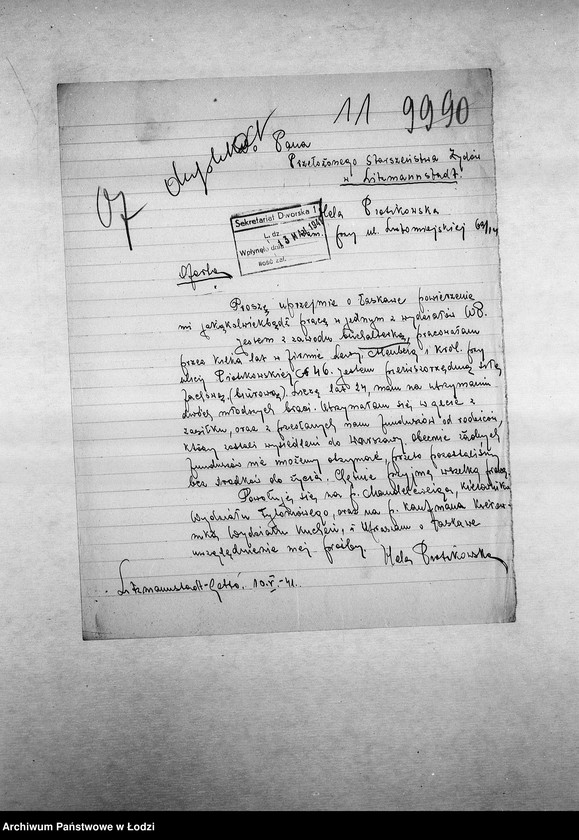 11 9990
Of
Do Pana
Przełożonego Starszeństwa Żydów
w Litzmannstadt.
Hela Piotrkowska
przy ul. Lutomierskiej
Sekretariat Dworska 1
L. dz.
Wpłynęło dnia 13 1941
Ilość zał.
Oferta
Proszę uprzejmie o łaskawe powierzenie
mi jakąkolwiekbądź pracę w jednym z wydziałów WP.
Jestem z zawodu buchalterką, pracowałam
przez kilka lat w firmie i Król. przy
ulicy Piotrkowskiej 46. Jestem pierwszorzędną siłą
fachową (biurową). Liczę lat 24, mam na utrzymaniu
dwóch młodszych braci. Utrzymałam się w gecie z
zasiłku, oraz z przesłanych nam funduszów od rodziców,
którzy zostali wysiedleni do Warszawy. Obecnie żadnych
funduszów nie możemy otrzymać, przeto pozostaliśmy
bez środków do życia. Chętnie przyjmę wszelką pracę.
Powołuję się na p. Mandelcweiga, Kierownika
Wydziału Tytoniowego, oraz na p. Kaufmana Kierow-
nika Wydziału Kuchen, i upraszam o łaskawe
uwzględnienie mej prośby.
Hela Piotrkowska
Litzmannstadt-Getto, 10.V.-41.
Archiwum Państwowe w Łodzi